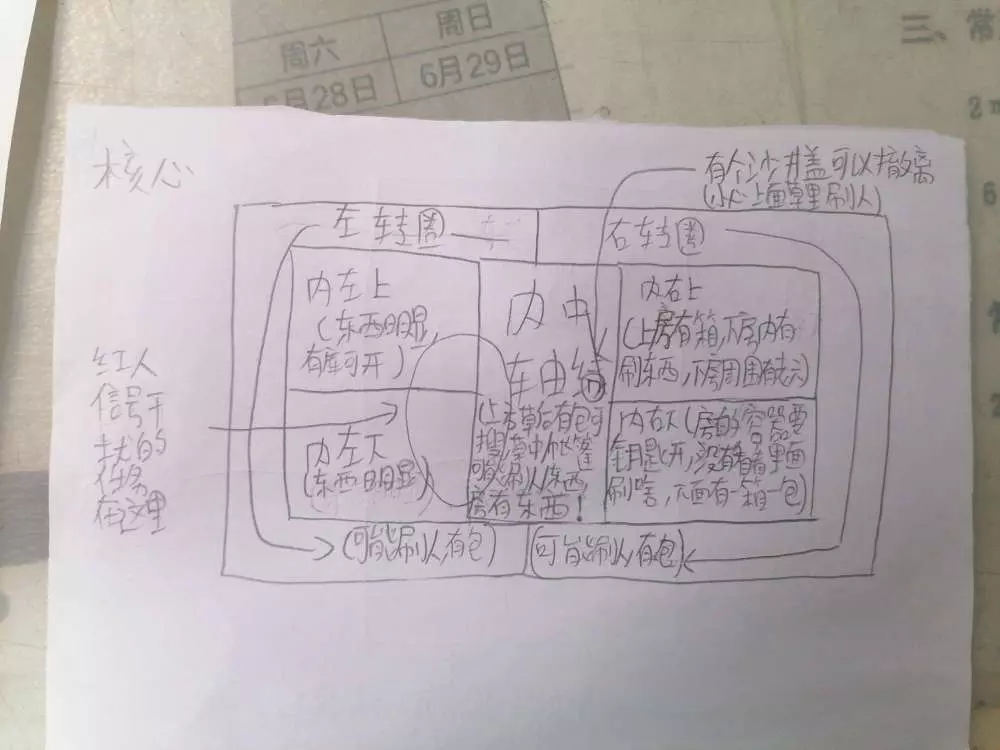 周六
周日
6月29日
月28日
三、常
核心
有个沙井盖可以撤离
(小心上面草里刷人)
左转圈
右转圈
内左上
(东西明显,
有库可开)
内中
内右上
(上房有箱,下房内有
刷东西,下房周围有
红人
信号干
扰的
任务
在这里
内左下
(东西明显)
(上右草后有包可
搜,草中帐篷
可能刷人/东西,
房有东西!
内右下(房的容器要
钥匙开,没有看看里面
刷啥,下面有一箱一包)
(可能刷人,有包)
(可能刷人,有包)